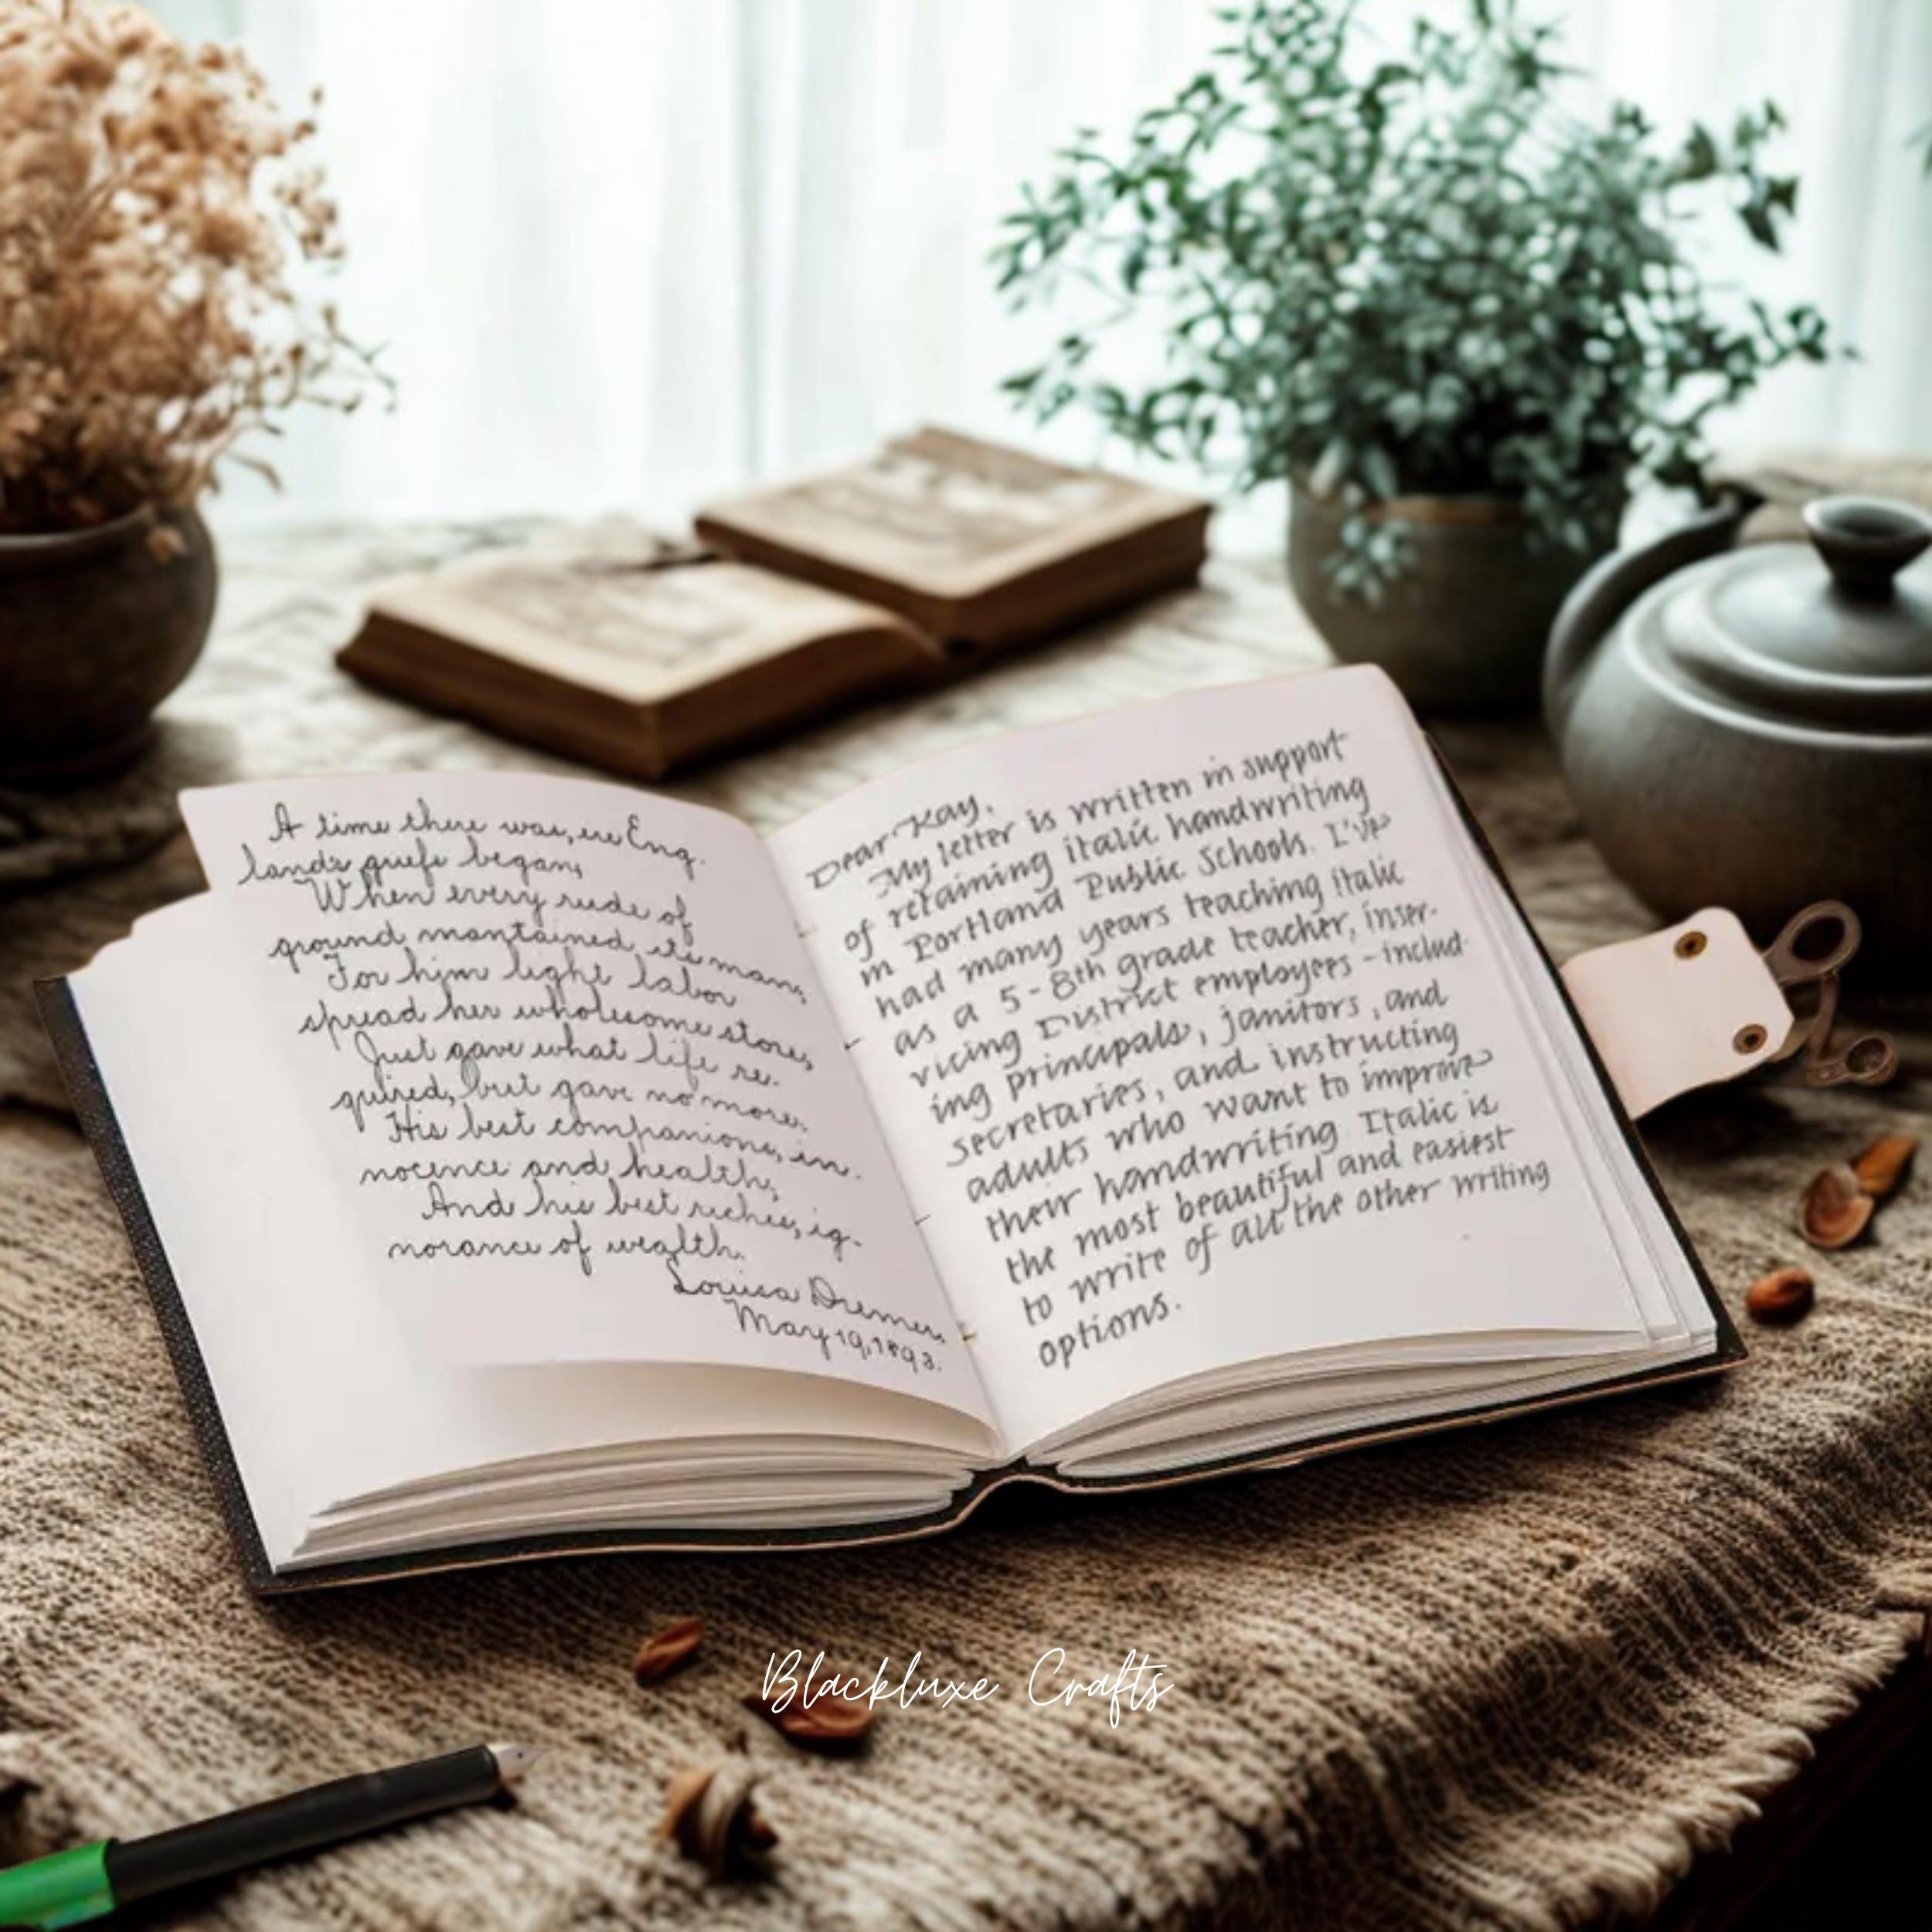 A time there was, ere Eng-
land's griefs began,
When every rude of
ground mantained its man;
For him light labor
spread her wholesome store,
Just gave what life re-
quired, but gave no more.
His best companions, in-
nocence and health;
And his best riches, ig-
norance of wealth.
Louisa
May 19, 1893.
Dear Kay,
My letter is written in support
of retaining italic handwriting
in Portland Public Schools. I've
had many years teaching italic
as a 5-8th grade teacher, inser-
vicing District employees - includ-
ing principals, janitors, and
secretaries, and instructing
adults who want to improve
their handwriting. Italic is
the most beautiful and easiest
to write of all the other writing
options.
Blackluxe Crafts